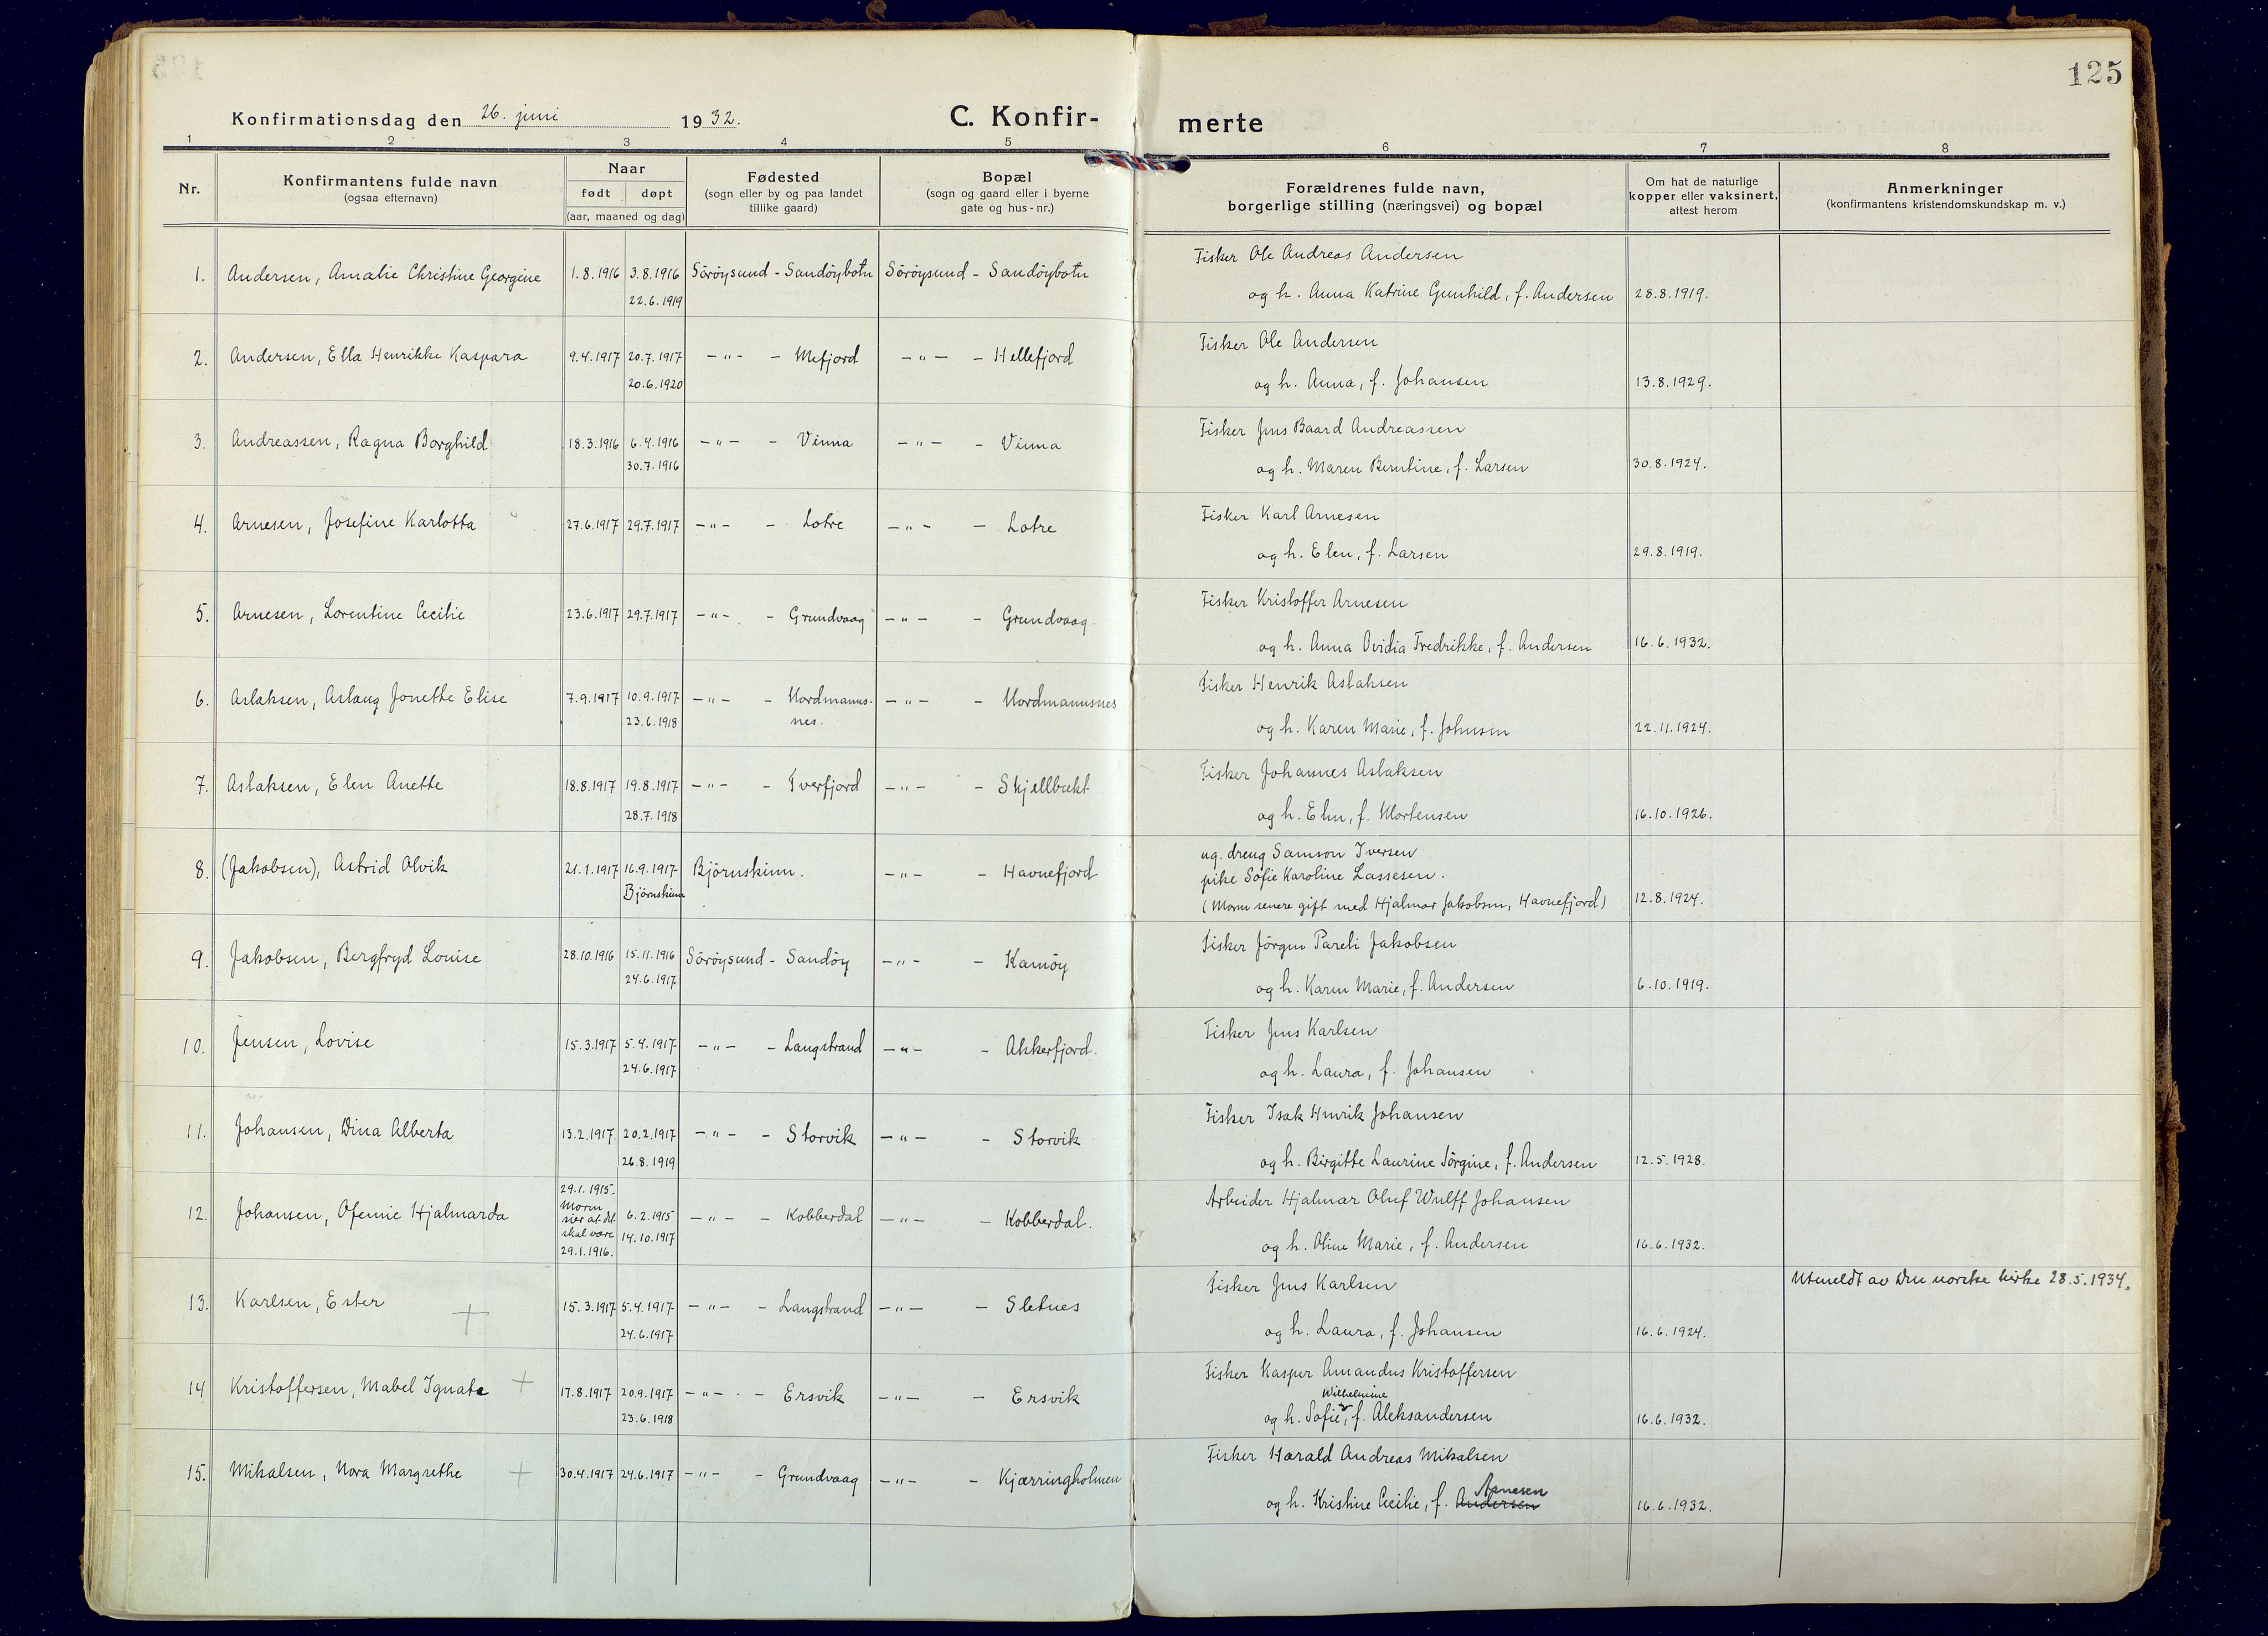 125
Konfirmationsdag den 26. juni 1932.
C. Konfirmerte
1 2 3 4 5 6 7 8
Nr.
Konfirmantens fulde navn
(ogsaa efternavn)
Naar
født døpt
(aar, maaned og dag)
Fødested
(sogn eller by og paa landet
tillike gaard)
Bopæl
(sogn og gaard eller i byerne
gate og hus-nr.)
Forældrenes fulde navn,
borgerlige stilling (næringsvei) og bopæl
Om hat de naturlige
kopper eller vaksinert,
attest herom
Anmerkninger
(konfirmantens kristendomskundskap m. v.)
1. Andersen, Amalie Christine Georgine 1.8.1916 3.8.1916 Söröysund - Sandöybotn Söröysund - Sandöybotn Fisker Ole Andreas Andersen
22.6.1919 og h. Anna Katrine Gunhild, f. Andersen 28.8.1919.
2. Andersen, Ella Henrikke Kaspara 9.4.1917 20.7.1917 -"- - Mefjord -"- - Hellefjord Fisker Ole Andersen
20.6.1920 og h. Anna, f. Johansen 13.8.1929.
3. Andreassen, Ragna Borghild 18.3.1916 6.4.1916 -"- - Vinna -"- - Vinna Fisker Jens Baard Andreassen
30.7.1916 og h. Maren Berntine, f. Larsen 30.8.1924.
4. Arnesen, Josefine Karlotta 27.6.1917 29.7.1917 -"- - Lotre -"- - Lotre Fisker Karl Arnesen
og h. Elen, f. Larsen 29.8.1919.
5. Arnesen, Lorentine Cecilie 23.6.1917 29.7.1917 -"- - Grundvaag -"- - Grundvaag. Fisker Kristoffer Arnesen
og h. Anna Ovidia Fredrikke, f. Andersen 16.6.1932.
6. Aslaksen, Aslaug Jonette Elise 7.9.1917 10.9.1917 -"- - Nordmanns- -"- - Nordmannsnes Fisker Henrik Aslaksen
23.6.1918 nes. og h. Karen Marie, f. Johnsen 22.11.1924.
7. Aslaksen, Elen Anette 18.8.1917 19.8.1917 -"- - Tverfjord -"- - Skjellbukt Fisker Johannes Aslaksen
28.7.1918 og h. Elen, f. Mortensen 16.10.1926.
8. (Jakobsen), Astrid Alvik 21.1.1917 16.9.1917 Björnskinn. -"- - Havnefjord ug. dreng Samson Iversen
Björnskinn pike Sofie Karoline Lassesen.
(Moren senere gift med Hjalmar Jakobsen, Havnefjord) 12.8.1924.
9. Jakobsen, Bergfryd Louise 28.10.1916 15.11.1916 Söröysund - Sandöy -"- - Kamöy Fisker Jörgen Pareli Jakobsen
24.6.1917 og h. Karen Marie, f. Andersen 6.10.1919.
10. Jensen, Lovise 15.3.1917 5.4.1917 -"- - Langstrand -"- - Akkerfjord. Fisker Jens Karlsen
24.6.1917 og h. Laura, f. Johansen
11. Johansen, Dina Alberta 13.2.1917 20.2.1917 -"- - Storvik -"- - Storvik Fisker Isak Henrik Johansen
26.8.1919 og h. Birgitte Laurine Jörgine, f. Andersen 12.5.1928.
12. Johansen, Ofenie Hjalmarda 29.1.1915. Moren sier at det skal være 29.1.1916. 6.2.1915 -"- - Kobberdal -"- - Kobberdal. Arbeider Hjalmar Oluf Wulff Johansen
14.10.1917 og h. Oline Marie, f. Andersen 16.6.1932.
13. Karlsen, Ester + 15.3.1917 5.4.1917 -"- - Langstrand -"- - Sletnes Fisker Jens Karlsen Utmeldt av Den norske kirke 28.5.1934.
24.6.1917 og h. Laura, f. Johansen 16.6.1924.
14 Kristoffersen, Mabel Ignate + 17.8.1917 20.9.1917 -"- - Ersvik -"- - Ersvik Fisker Kasper Amandus Kristoffersen
23.6.1918 og h. Sofie Wilhelmine, f. Aleksandersen 16.6.1932.
15. Mikalsen, Nora Margrethe + 30.4.1917 24.6.1917 -"- - Grundvaag -"- - Kjærringholmen Fisker Harald Andreas Mikalsen
og h. Kristine Cecilie, f. Andersen Arnesen 16.6.1932.